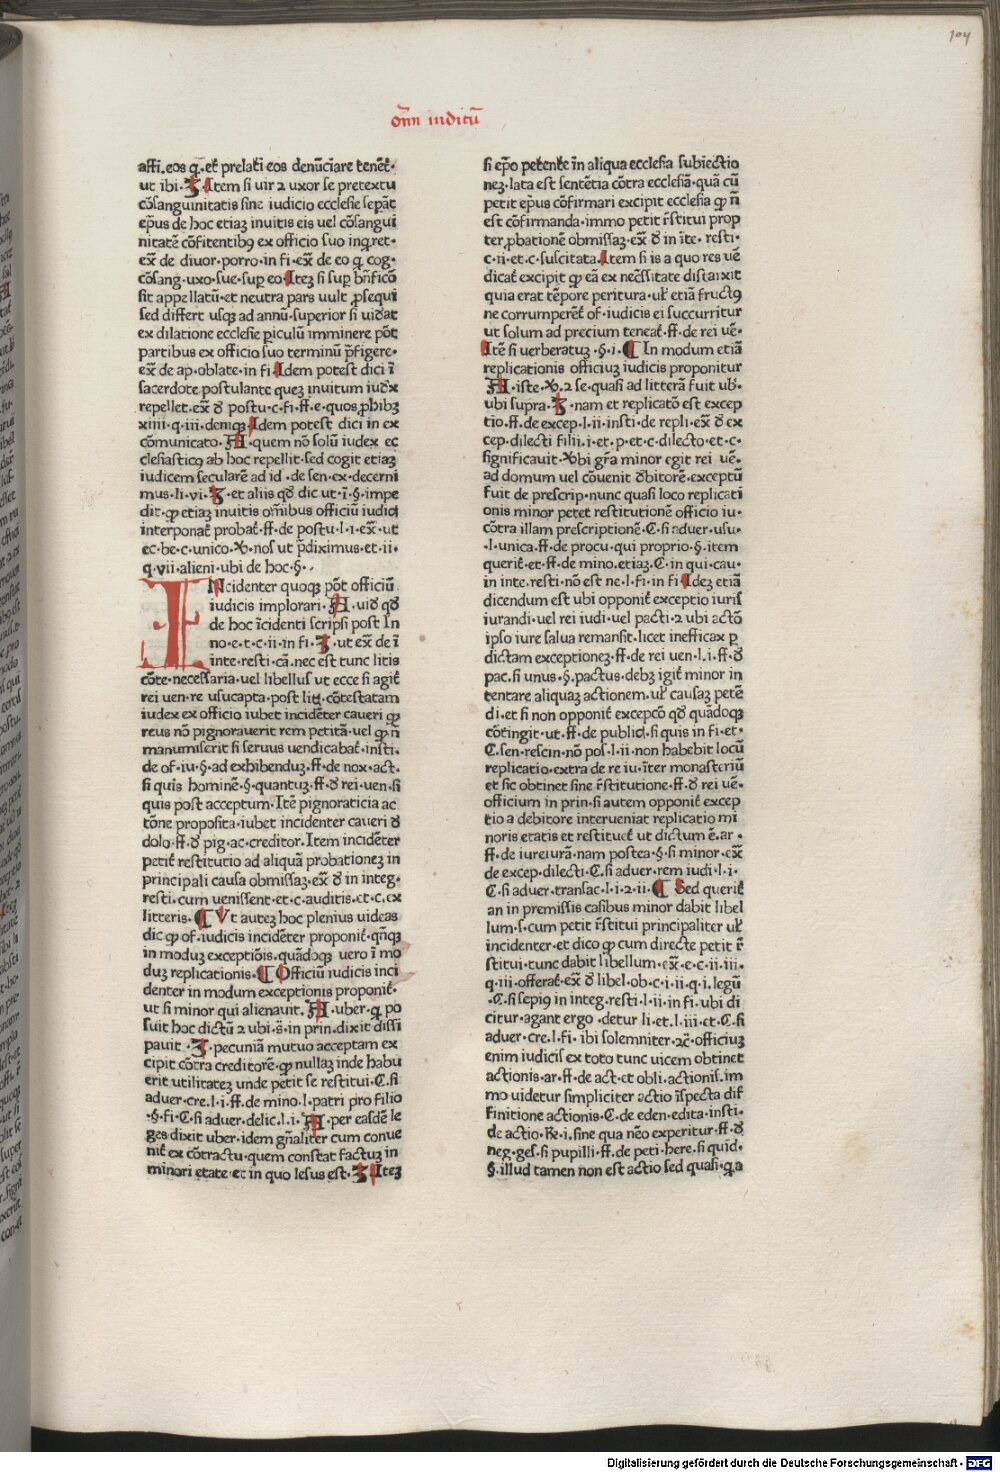 104
om̄ iudicū
assi.eos q̄.et̉ prelati eos denūciare tenēt̉.
ut ibi.Ʒ Item si uir ⁊ uxor se pretextu
cōsanguinitatis sine iudicio ecclesie sepāt
ep̄us de hoc etiaꝫ inuitis eis uel cōsangui
nitatē cōfitentibꝯ ex officio suo inq̄ret.
ex̄ de diuor.porro.in fi.ex̄ de eo q̄ cog.
cōsang.uxo.sue.sup̱ eo.Iteꝫ si sup̱ bn̄ficō
sit appellatū.et neutra pars uult ꝓsequi
sed differt usqꝫ ad annū.superior si uidāt
ex dilatione ecclesie piculū imminere pōt
partibus ex officio suo terminū p̄figere.
ex̄ de ap.oblate.in fi.Idem potest dici ī
sacerdote postulante queꝫ inuitum iudx
repellet.ex̄ ꝺ postu.c.fi.ff.e.quos.ꝓhibꝫ
xiiii.q.iii.deniqꝫ.Idem potest dici in ex
cōmunicato.A.quem nō solū iudex ec
clesiasticꝯ ab hoc repellit.sed cogit etiaꝫ
iudicem secularē ad id.de sen.ex.decerni
mus.li.vi.Ʒ.et aliis qꝺ dic ut.ī.§.impe
dit.ꝙ etiaꝫ inuitis om̄ibus officiū iudici
interponat̉ probat̉.ff.de postu.l.i.ex̄.ut
ec.be.c.unico.Ꝟ.nos ut p̄diximus.et.ii.
q.vii.alieni.ubi de hoc.§.
INcidenter quoqꝫ pōt officiū
iudicis implorari.A.uiꝺ qꝺ
de hoc īcidenti scripsi post In
no.e.t.c.ii.in fi.Ʒ.ut ex̄ de ī
inte.resti.cā.nec est tunc litis
cōte.necessaria.uel libellus ut ecce si agit̉
rei uen.re usucapta.post litꝫ cōtestatam
iudex ex officio iubet incidēter caueri ꝙ
reus nō pignorauerit rem petitā.uel ꝙ n̄
manumiserit si seruus uendicabat̉.insti.
de of.iu.§.ad exhibenduꝫ.ff.de nox.act.
si quis hominē.§.quantuꝫ.ff.ꝺ rei.uen.si
quis post acceptum.Itē pignoraticia ac
tōne proposita.iubet incidenter caueri ꝺ
dolo.ff.ꝺ pig.ac.creditor.Item incidēter
petit̉ restitutio ad aliquā probationeꝫ in
principali causa obmissaꝫ.ex̄ ꝺ in integ.
resti.cum uenissent.et.c.auditis.et.c.ex
litteris.¶ Ut auteꝫ hoc plenius uideas
dic ꝙ of.iudicis incidēter proponit̉.qn̄qꝫ
in moduꝫ exceptiōis.quādoqꝫ uero ī mo
duꝫ replicationis.¶ Officiū iudicis inci
denter in modum exceptionis proponit̉.
ut si minor qui alienauit.A.uber.q̄ po
suit hoc dictū ⁊ ubi.s̄.in prin.dixit dissi
pauit.Ʒ.pecuniā mutuo acceptam ex
cipit cōtra creditorē.ꝙ nullaꝫ inde habu
erit utilitateꝫ unde petit se restitui.C.si
aduer.cre.l.i.ff.de mino.l.patri pro filio
.§.fi.C.si aduer.delic.l.i.A.per easdē le
ges dixit uber.idem gn̄aliter cum conue
nit̉ ex cōtractu.quem constat factuꝫ in
minori etate.et in quo lesus est.Ʒ Iteꝫ
si ep̄o petente īn aliqua ecclesia subiectio
neꝫ.lata est sentētia cōtra ecclesiā.quā cū
petit ep̄us cōfirmari excipit ecclesia ꝙ n̄
est cōfirmanda.immo petit r̄stitui prop
ter ꝓbationē obmissaꝫ.ex̄ ꝺ in īte.resti.
c.ii.et.c.suscitata.Item si is a quo res uē
dicat̉ excipit ꝙ eā ex nec̄ssitate distraxit
quia erat tēpore peritura.ul̉ etiā fructꝯ
ne corrumperēt̉ of.iudicis ei succurritur
ut solum ad precium teneat̉.ff.de rei uē.
Itē si uerberatuꝫ.§.i.¶ In modum etiā
replicationis officiuꝫ iudicis proponitur
A.iste.Ꝟ.⁊ se.quasi ad litterā fuit ub̉.
ubi supra.Ʒ.nam et replicatō est excep
tio.ff.de excep.l.ii.insti.de repli.ex̄ ꝺ ex
cep.dilecti filii.i.et.p.et.c.dilecto.et.c.
significauit.Ꝟbi gr̄a minor egit rei uē.
ad domum uel cōuenit ꝺbitorē.exceptū
fuit de prescrip.nunc quasi loco replicati
onis minor petet restitutionē officio iu.
cōtra illam prescriptionē.C.si aduer.usu.
.l.unica.ff.de procu.qui proprio.§.item
querit̉.et.ff.de mino.etiaꝫ.C.in qui.cau.
in inte.resti.nō est ne.l.fi.in fi Ideꝫ etiā
dicendum est ubi opponit̉ exceptio iuris
iurandi.uel rei iudi.uel pacti.⁊ ubi actō
ipso iure salua remansit.licet inefficax p̱
dictam exceptioneꝫ.ff.de rei uen.l.i.ff.ꝺ
pac.si unus.§.pactus.debꝫ igit̉ minor in
tentare aliquaꝫ actionem.ul̉ causaꝫ petē
di.et si non opponit̉ excepcō qꝺ quādoqꝫ
cōtingit.ut.ff.de public̣.si quis in fi.et.
C.sen.rescin.nō pos.l.ii.non habebit locū
replicatio.extra de re iu.īter monasteriū
et sic obtinet sine r̄stitutione.ff.ꝺ rei uē.
officium in prin.si autem opponit̉ excep
tio a debitore interueniat replicatio mi
noris etatis et restituet̉ ut dictum ē.ar.
ff.de iureiurā.nam postea.§.si minor.ex̄
de excep.dilecti.C.si aduer.rem iudi.l.i.
C.si aduer.transac.l.i.⁊.ii.¶ Sed querit̉
an in premissis casibus minor dabit libel
lum.s.cum petit r̄stitui principaliter ul̉
incidenter.et dico ꝙ cum directe petit r̄
stitui.tunc dabit libellum.ex̄.e.c.ii.iii.
q.iii.offerat̉.ex̄ ꝺ libel.ob.c.i.ii.q.i.legū
.C.si sepiꝯ in integ.resti.l.ii.in fi.ubi di
citur.agant ergo.detur li.et.l.iii.et.C.si
aduer.cre.l.fi.ibi solemniter.⁊c̄.officiuꝫ
enim iudicis ex toto tunc uicem obtinet
actionis.ar.ff.de act.et obli.actionis.im
mo uidetur simpliciter actio īspecta dif
finitione actionis.C.de eden.edita.insti.
de actio.R.i.sine qua nēo experitur.ff.ꝺ
neg.ges.si pupilli.ff.de peti.here.si quid.
§.illud tamen non est actio sed quasi.q̄ a
Digitalisierung gefördert durch die Deutsche Forschungsgemeinschaft - DFG